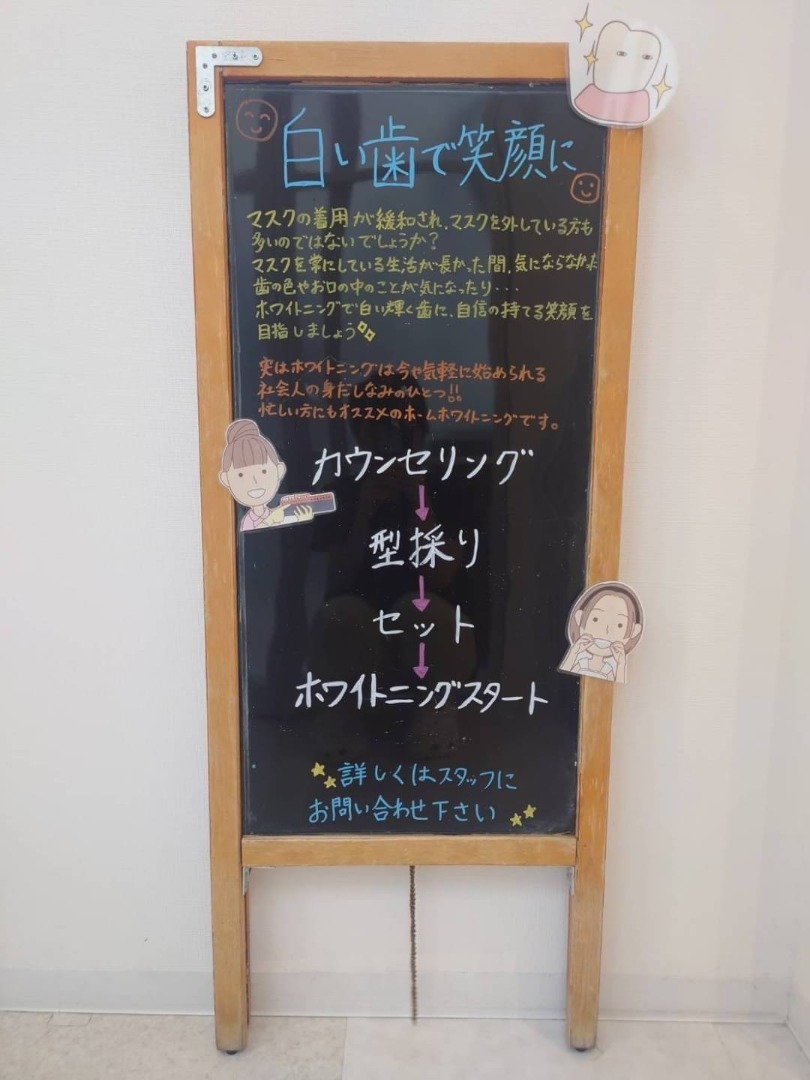 白い歯で笑顔に
マスクの着用が緩和され、マスクを外している方も
多いのではないでしょうか？
マスクを常にしている生活が長かった間、気にならなかった
歯の色やお口の中のことが気になったり・・・
ホワイトニングで白い輝く歯に、自信の持てる笑顔を
目指しましょう
実はホワイトニングは今や気軽に始められる
社会人の身だしなみのひとつ!!
忙しい方にもオススメのホームホワイトニングです。
カウンセリング
↓
型採り
↓
セット
↓
ホワイトニングスタート
詳しくはスタッフに
お問い合わせ下さい